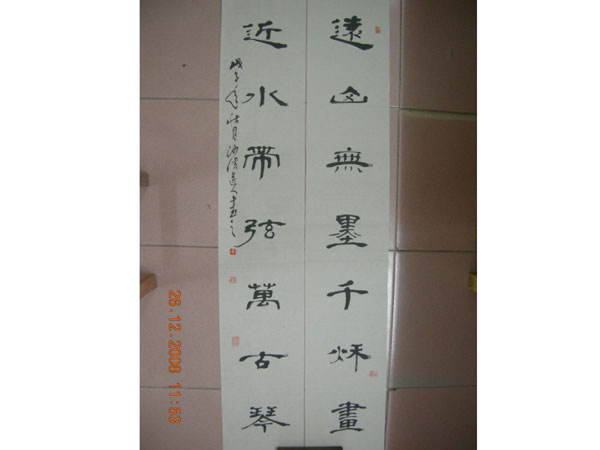 遠山無墨千秌畫
近水帶弦萬古琴
戊子年秋月
26.12.2008 11:53